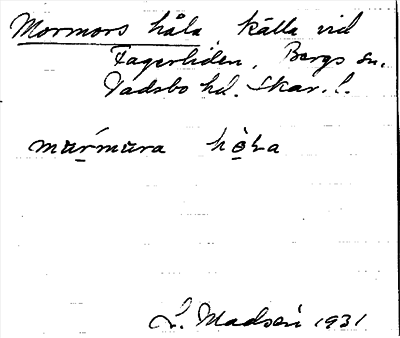 Mormors håla, källa vid
Fagerliden, Bergs sn.
Vadsbo hd. Skar. l.
marmara hola
L. Madsén 1931